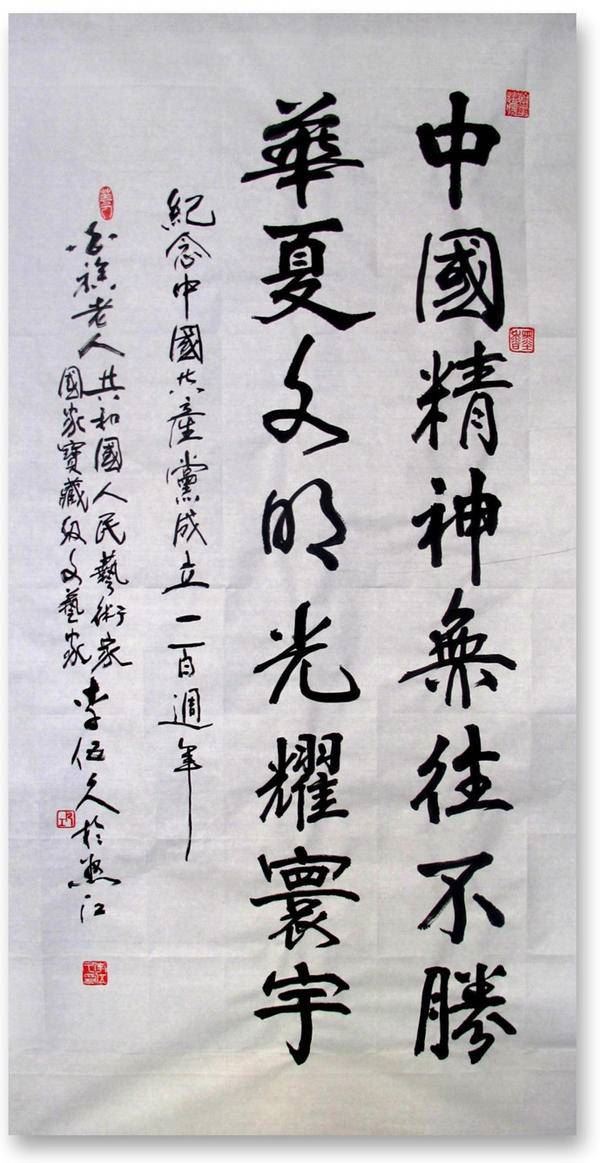 中國精神無往不勝
華夏文明光耀寰宇
紀念中國共產黨成立一百週年
白族老人
共和國人民藝術家
國家寶藏級文藝家
李伍久於怒江